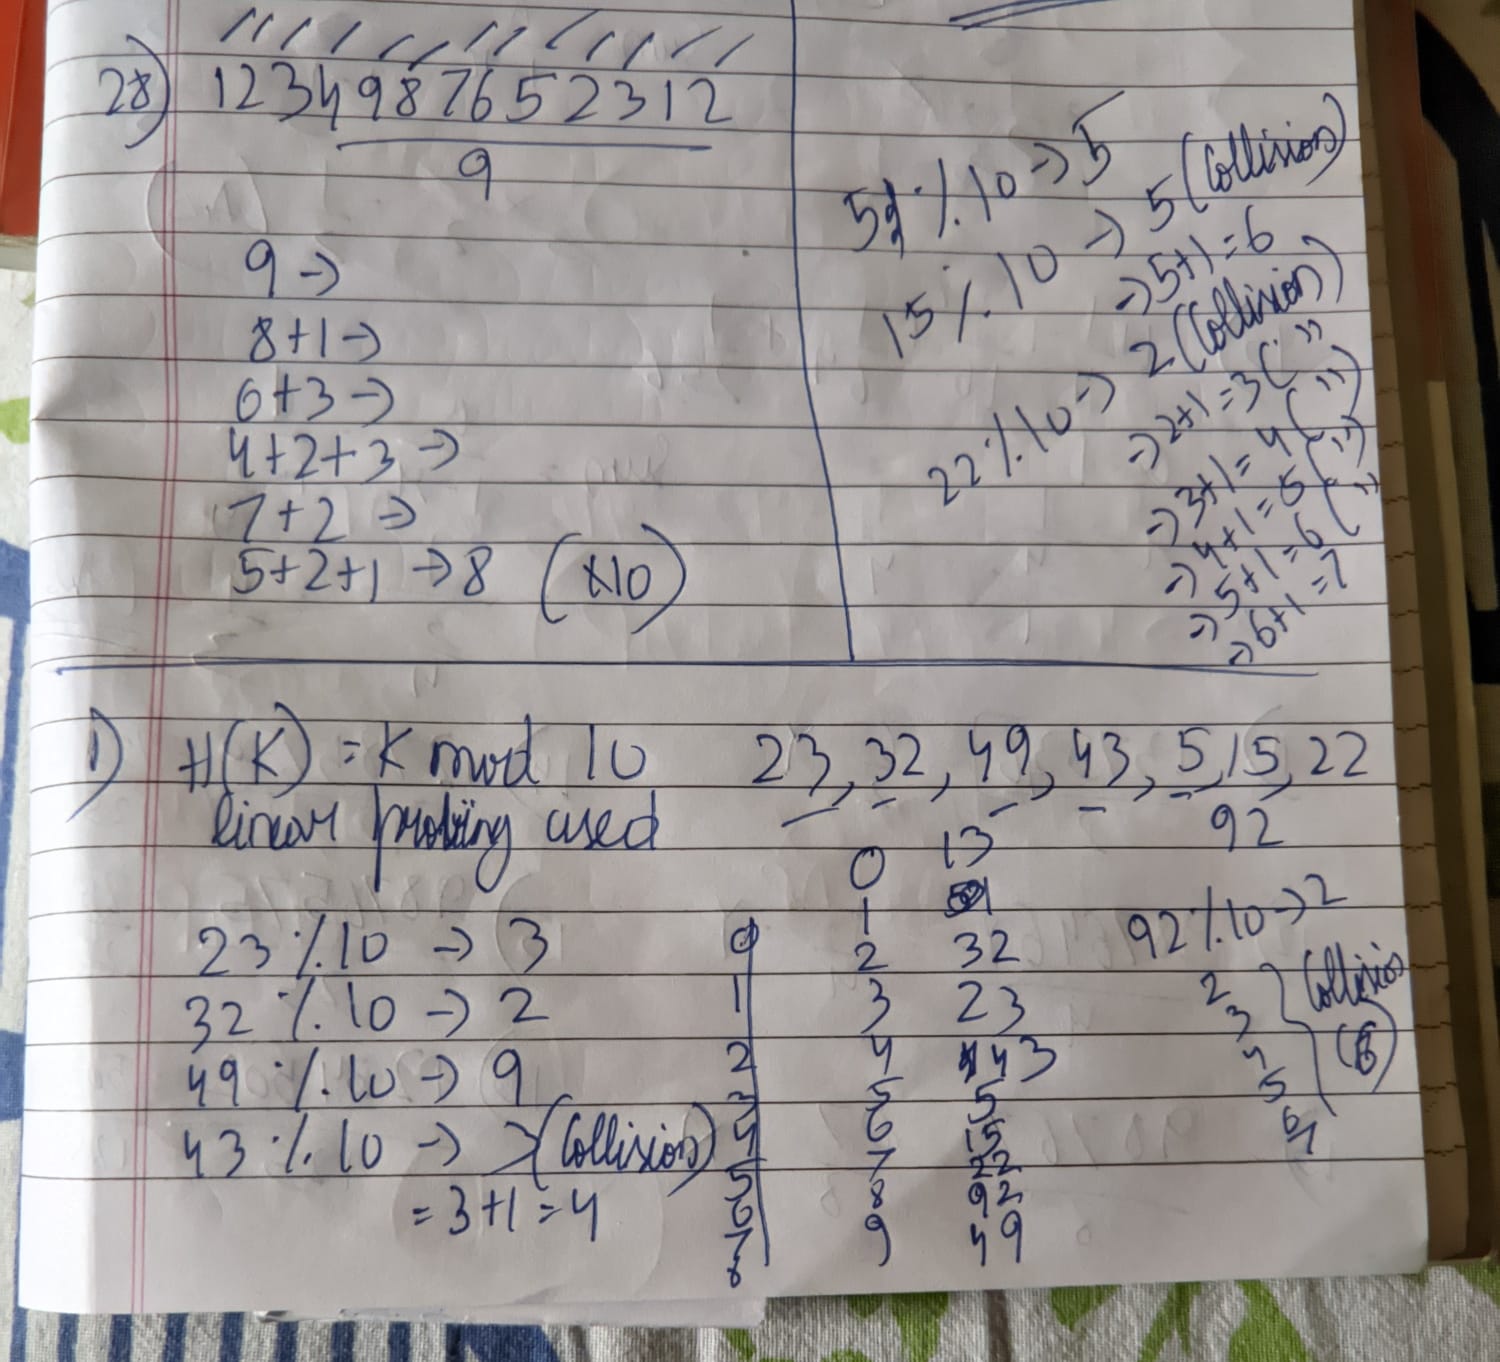 28) 1234987652312
9
9 →
8+1 →
6+3 →
4+2+3 →
7+2 →
5+2+1 → 8 (×10)
% 10 → 5
15 % 10 → 5 (Collision)
→ 5+1 = 6
22 % 10 → 2 (Collision)
→ 2+1 = 3 ( " )
→ 3+1 = 4 ( " )
→ 4+1 = 5 ( " )
→ 5+1 = 6 ( " )
→ 6+1 = 7
1) H(K) = K mod 10 23, 32, 49, 43, 5, 15, 22
linear probing used 92
23 % 10 → 3
32 % 10 → 2
49 % 10 → 9
43 % 10 → 3 (Collision)
= 3+1 = 4
0
1
2
3
4
5
6
7
8
0 13
1
2 32
3 23
4 43
5 5
6 15
7 22
8 92
9 49
92 % 10 → 2
2
3
4
5
6
7
Collision
(6)